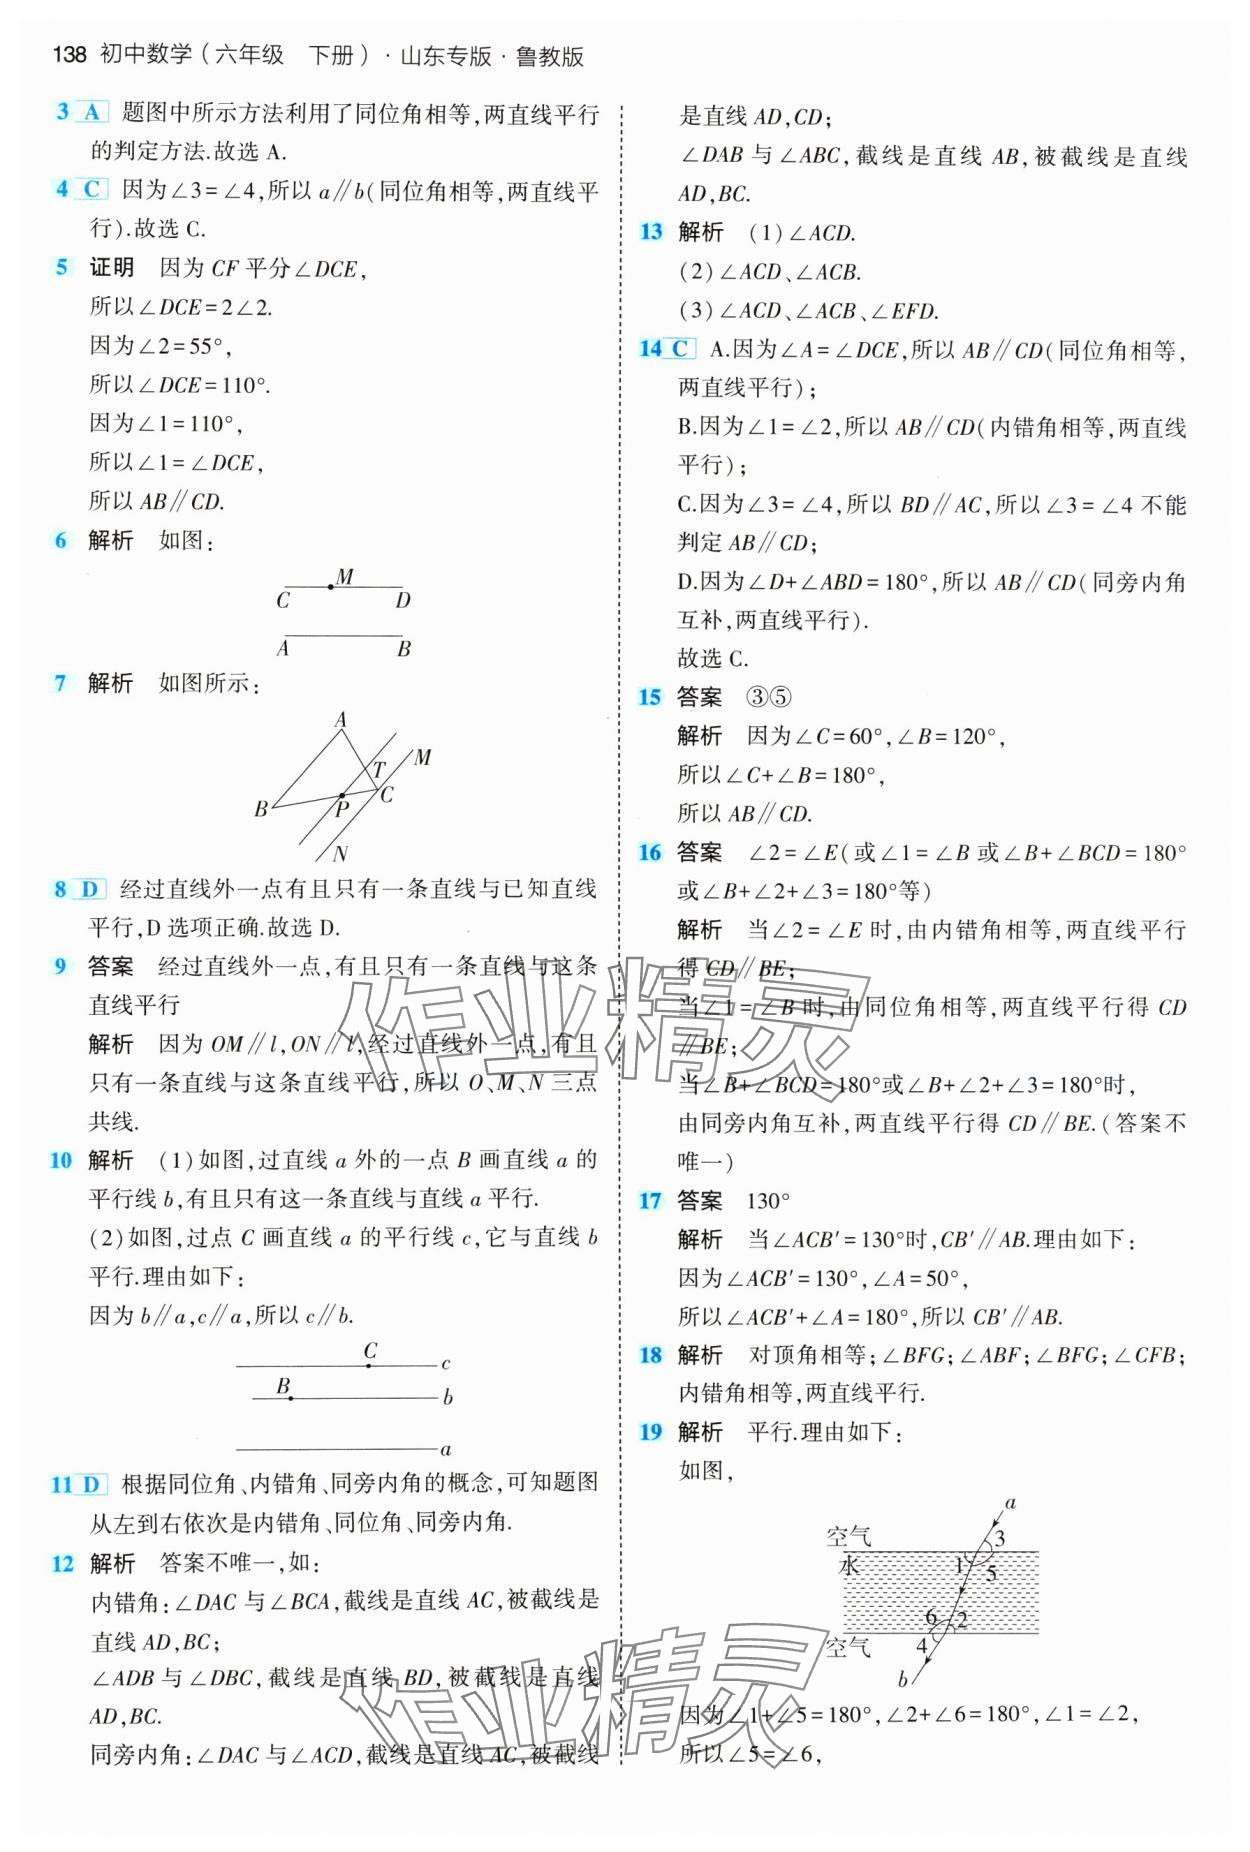 138 初中数学(六年级 下册)·山东专版·鲁教版
3 A 题图中所示方法利用了同位角相等,两直线平行
的判定方法.故选 A.
4 C 因为∠3=∠4,所以 a∥b(同位角相等,两直线平
行).故选 C.
5 证明 因为 CF 平分∠DCE,
所以∠DCE=2∠2.
因为∠2=55°,
所以∠DCE=110°.
因为∠1=110°,
所以∠1=∠DCE,
所以 AB∥CD.
6 解析 如图:
M
C D
A B
7 解析 如图所示:
A
M
T
C
B
P
N
8 D 经过直线外一点有且只有一条直线与已知直线
平行,D 选项正确.故选 D.
9 答案 经过直线外一点,有且只有一条直线与这条
直线平行
解析 因为 OM∥l,ON∥l,经过直线外一点,有且
只有一条直线与这条直线平行,所以 O、M、N 三点
共线.
10 解析 (1)如图,过直线 a 外的一点 B 画直线 a 的
平行线 b,有且只有这一条直线与直线 a 平行.
(2)如图,过点 C 画直线 a 的平行线 c,它与直线 b
平行.理由如下:
因为 b∥a,c∥a,所以 c∥b.
C
c
B
b
a
11 D 根据同位角、内错角、同旁内角的概念,可知题图
从左到右依次是内错角、同位角、同旁内角.
12 解析 答案不唯一,如:
内错角:∠DAC 与∠BCA,截线是直线 AC,被截线是
直线 AD,BC;
∠ADB 与∠DBC,截线是直线 BD,被截线是直线
AD,BC.
同旁内角:∠DAC 与∠ACD,截线是直线 AC,被截线
是直线 AD,CD;
∠DAB 与∠ABC,截线是直线 AB,被截线是直线
AD,BC.
13 解析 (1)∠ACD.
(2)∠ACD、∠ACB.
(3)∠ACD、∠ACB、∠EFD.
14 C A.因为∠A=∠DCE,所以 AB∥CD(同位角相等,
两直线平行);
B.因为∠1=∠2,所以 AB∥CD(内错角相等,两直线
平行);
C.因为∠3=∠4,所以 BD∥AC,所以∠3=∠4 不能
判定 AB∥CD;
D.因为∠D+∠ABD=180°,所以 AB∥CD(同旁内角
互补,两直线平行).
故选 C.
15 答案 ③⑤
解析 因为∠C=60°,∠B=120°,
所以∠C+∠B=180°,
所以 AB∥CD.
16 答案 ∠2=∠E(或∠1=∠B 或∠B+∠BCD=180°
或∠B+∠2+∠3=180°等)
解析 当∠2=∠E 时,由内错角相等,两直线平行
得 CD∥BE;
当∠1=∠B 时,由同位角相等,两直线平行得 CD
∥BE;
当∠B+∠BCD=180°或∠B+∠2+∠3=180°时,
由同旁内角互补,两直线平行得 CD∥BE.(答案不
唯一)
17 答案 130°
解析 当∠ACB′=130°时,CB′∥AB.理由如下:
因为∠ACB′=130°,∠A=50°,
所以∠ACB′+∠A=180°,所以 CB′∥AB.
18 解析 对顶角相等;∠BFG;∠ABF;∠BFG;∠CFB;
内错角相等,两直线平行.
19 解析 平行.理由如下:
如图,
a
空气 3
水 1 5
6 2
空气 4
b
因为∠1+∠5=180°,∠2+∠6=180°,∠1=∠2,
所以∠5=∠6,
作业精灵
作业精灵